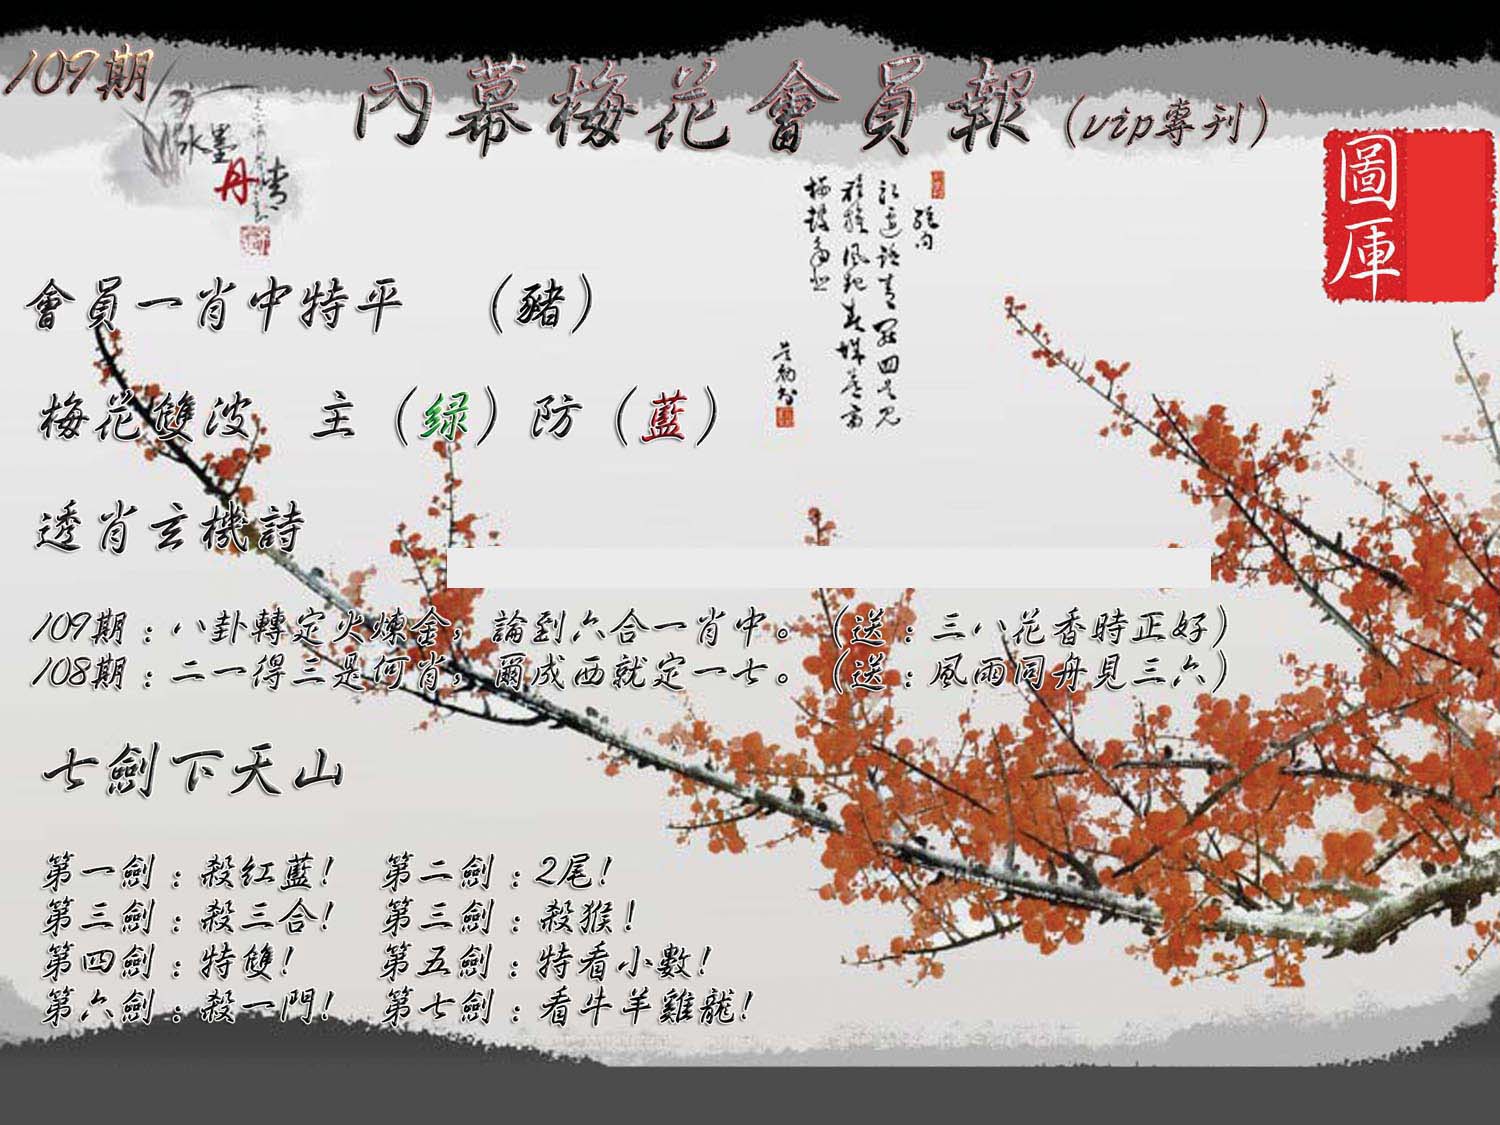 109期
內幕梅花會員報(vip專刊)
水墨
丹青
圖庫
會員一肖中特平 (豬)
梅花雙波 主(绿)防(藍)
透肖玄機詩
109期:八卦轉定火煉金,論到六合一肖中。(送:三八花香時正好)
108期:二一得三是何肖,爾成西就定一七。(送:風雨同舟見三六)
七劍下天山
第一劍:殺红藍! 第二劍:2尾!
第三劍:殺三合! 第三劍:殺猴!
第四劍:特雙! 第五劍:特看小數!
第六劍:殺一門! 第七劍:看牛羊雞龍!